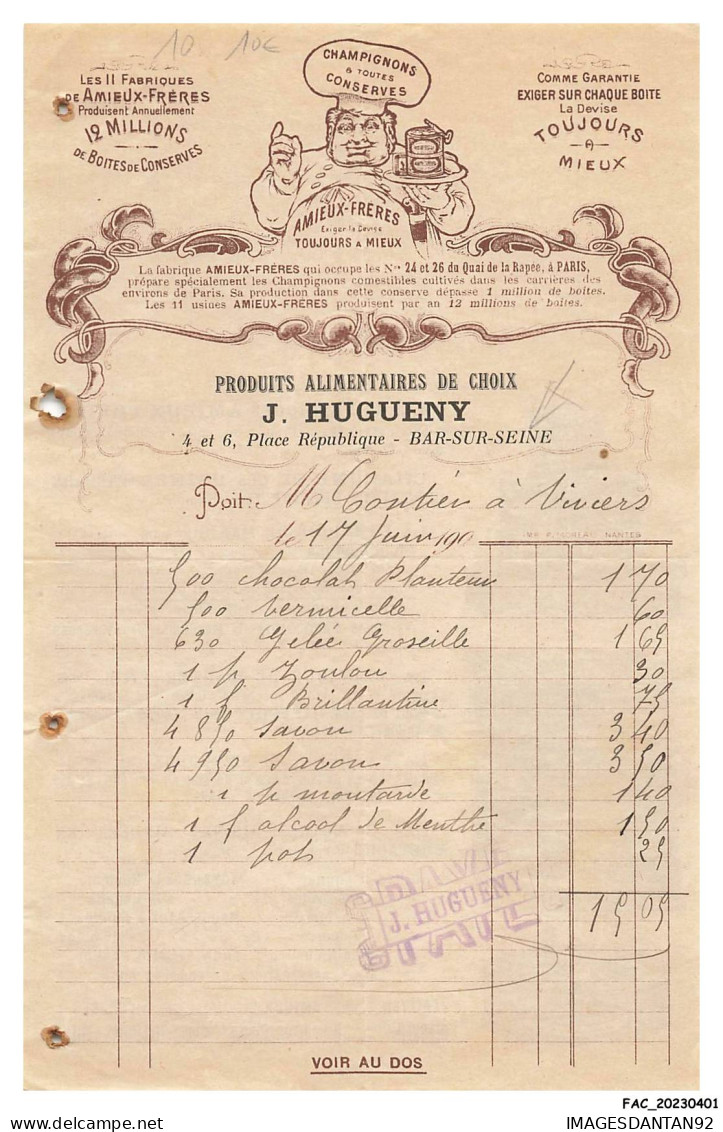 10 10€
CHAMPIGNONS
& TOUTES
CONSERVES
LES 11 FABRIQUES
DE AMIEUX-FRÈRES
Produisent Annuellement
12 MILLIONS
DE BOITES DE CONSERVES
COMME GARANTIE
EXIGER SUR CHAQUE BOITE
La Devise
TOUJOURS
A
MIEUX
AMIEUX-FRÈRES
Exiger la Devise
TOUJOURS A MIEUX
La fabrique AMIEUX-FRÈRES qui occupe les Nos 24 et 26 du Quai de la Rapée, à PARIS,
prépare spécialement les Champignons comestibles cultivés dans les carrières des
environs de Paris. Sa production dans cette conserve dépasse 1 million de boites.
Les 11 usines AMIEUX-FRÈRES produisent par an 12 millions de boites.
PRODUITS ALIMENTAIRES DE CHOIX
J. HUGUENY
4 et 6, Place République - BAR-SUR-SEINE
Doit M à Viviers
le 17 Juin 190
NANTES
500 chocolat Planteur 1 70
500 vermicelle 60
630 Gelée Groseille 1 65
1 p Zoulou 30
1 f Brillantine 75
4 850 savon 3 40
4 950 savon 3 50
1 p moutarde 1 40
1 f alcool de Menthe 1 50
1 pot 25
J. HUGUENY
15 05
VOIR AU DOS
FAC_20230401
IMAGESDANTAN92